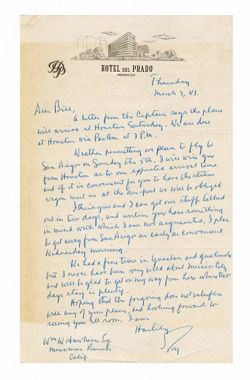 HOTEL DEL PRADO
MEXICO, D.F.
Thursday
March 3, 49.
Dear Bill,
A letter from the Captain says the plane
will arrive at Houston Saturday. We are due
at Houston via PanAm at 3 P.M.
Weather permitting we plan to fly to
San Diego on Sunday the 5th, I will wire you
from Houston as to our expected arrival time
and if it is convenient for you to have the station
wagon meet us at the air port we will be obliged
I think you and I can get our stuff talked
out in two days, and unless you have something
in mind with which I am not acquainted, I plan
to get away from San Diego as early as convenient
Wednesday morning
We had a fine time in Yucatan and Guatemala
but I never have been very wild about Mexico City
and will be glad to get on my way from here where two
days stay is plenty.
Hoping that the forgoing does not interfere
with any of your plans, and looking forward to
seeing you all soon, I am
Wm W.
Ranch
Calif